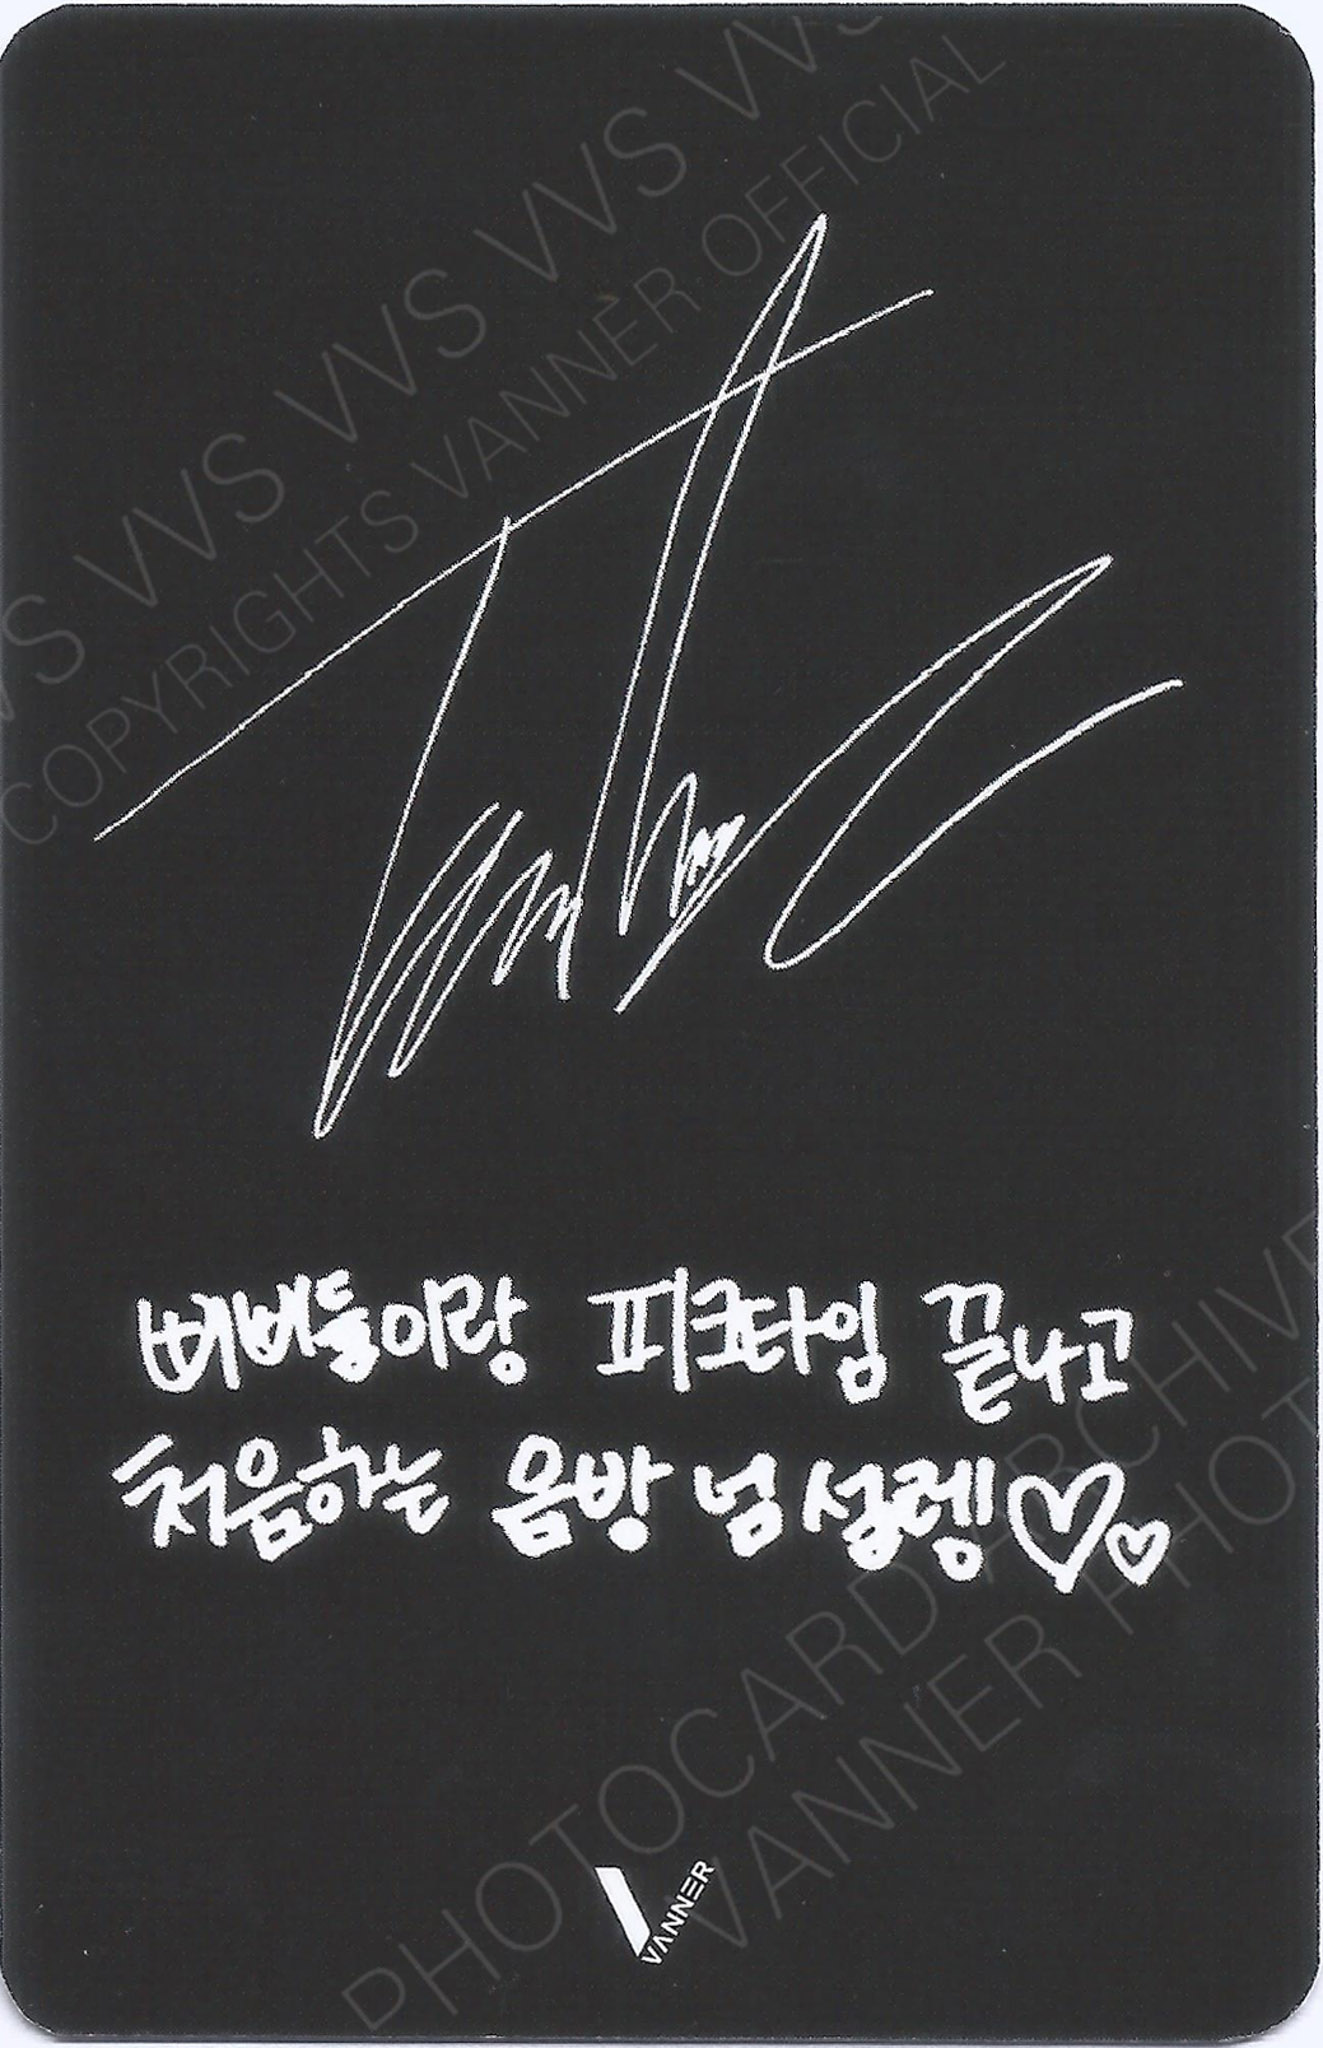 VVS VVS VVS VVS VVS
COPYRIGHTS VANNER OFFICIAL
삐삐들이랑 피크타임 끝나고
처음하는 음방 넘 설렝♡♡
PHOTOCARD ARCHIVE
VANNER PHOT
VANNER